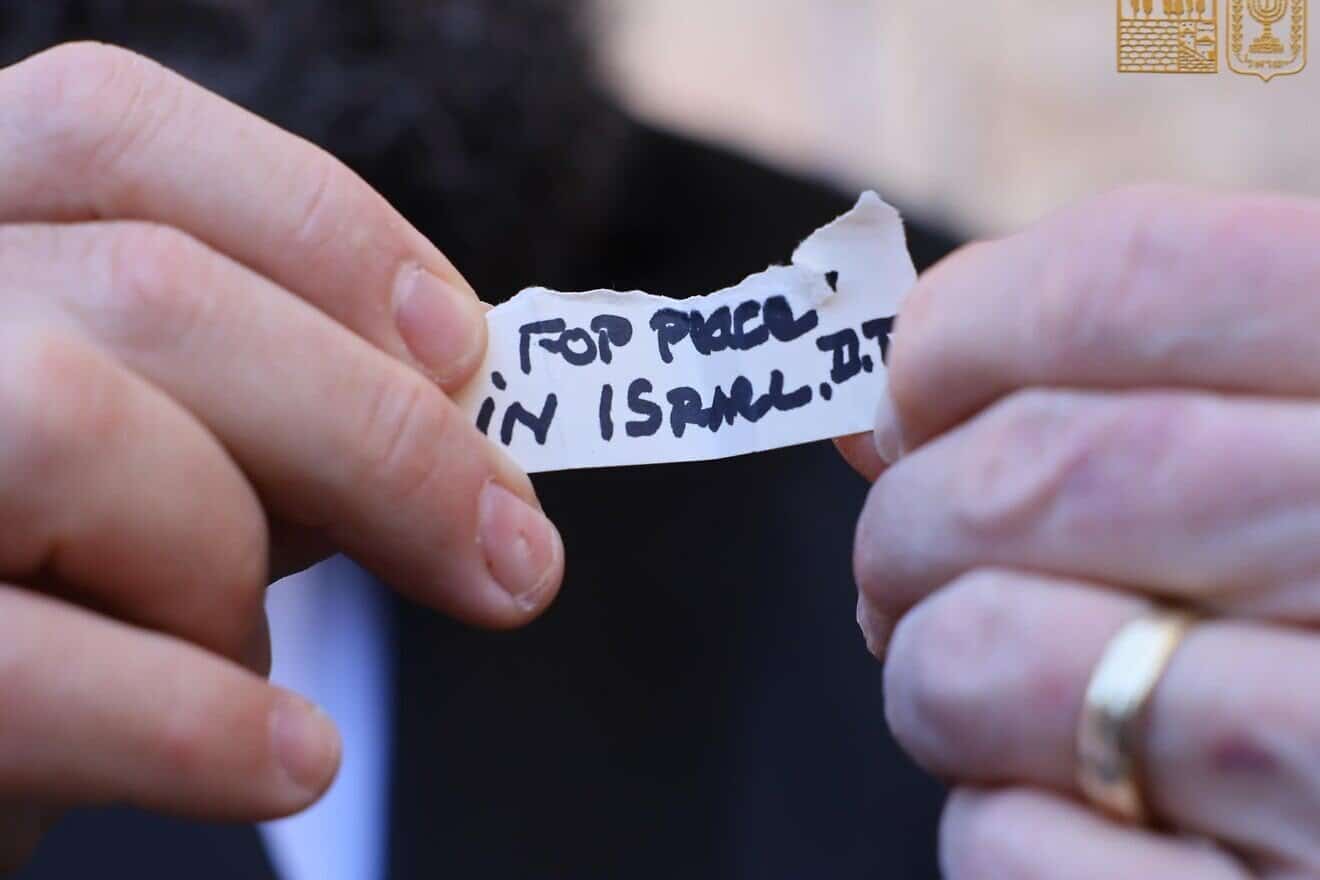 ישראל
. FOR PEACE
IN ISRAEL. D.T